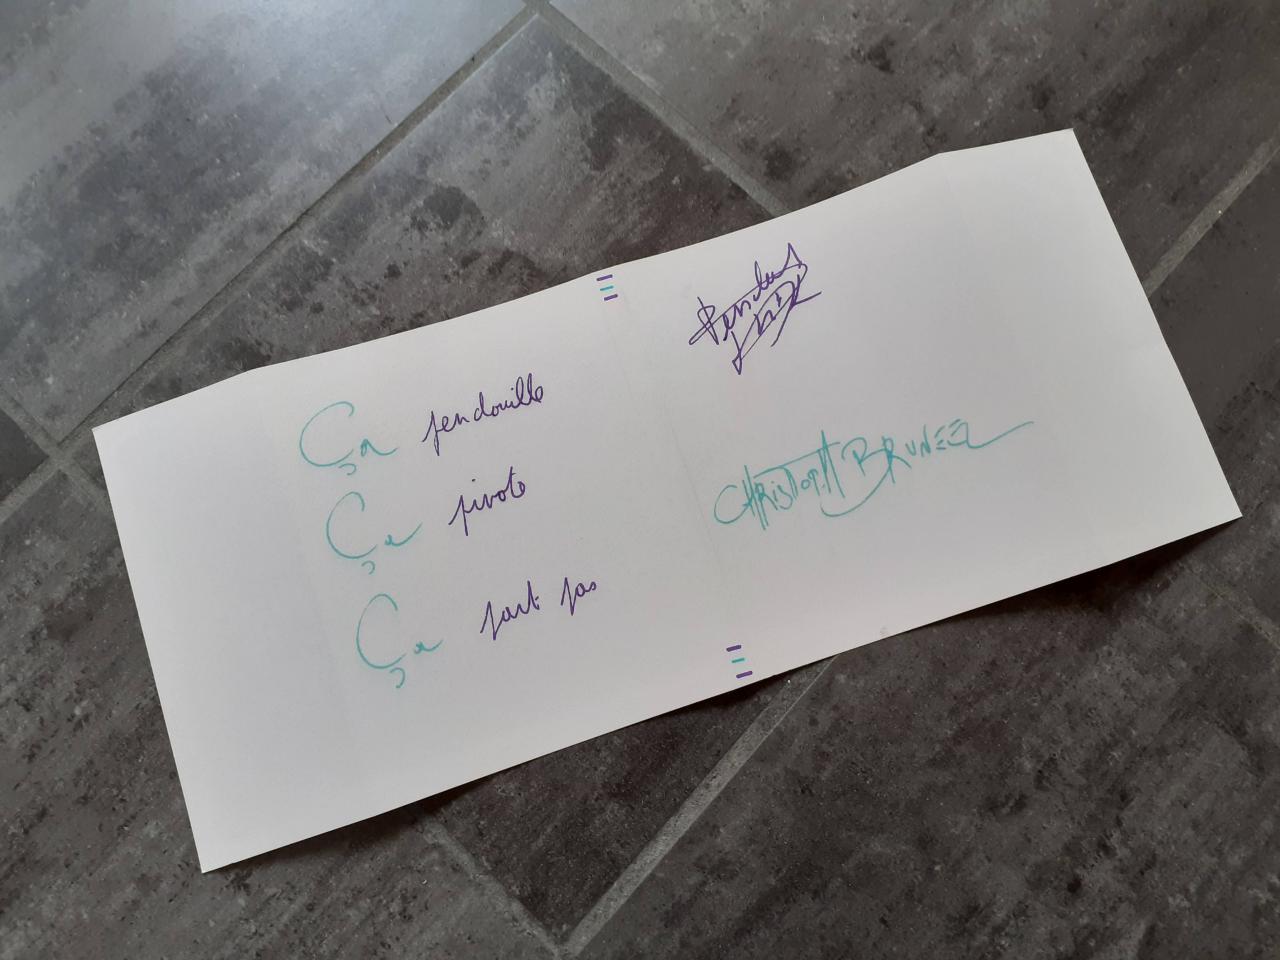 Ça pendouille
Ça pivote
Ça part pas
Pendus
CHRISTOPH BRUNEEL